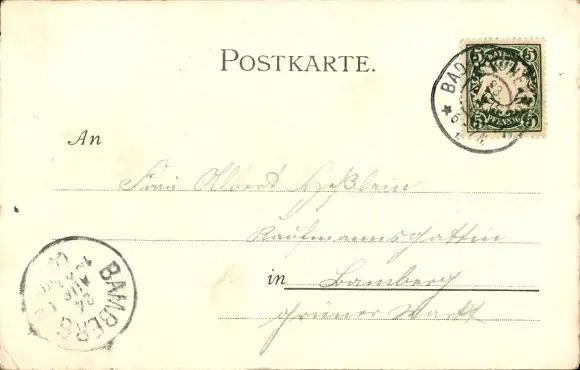 POSTKARTE.
BAD
5 BAYERN 5
5 PFENNIG 5
An
Frau Albert Heßlein
Kaufmannsgattin
in Bamberg
Grüner Markt
BAMBERG
24
AUG